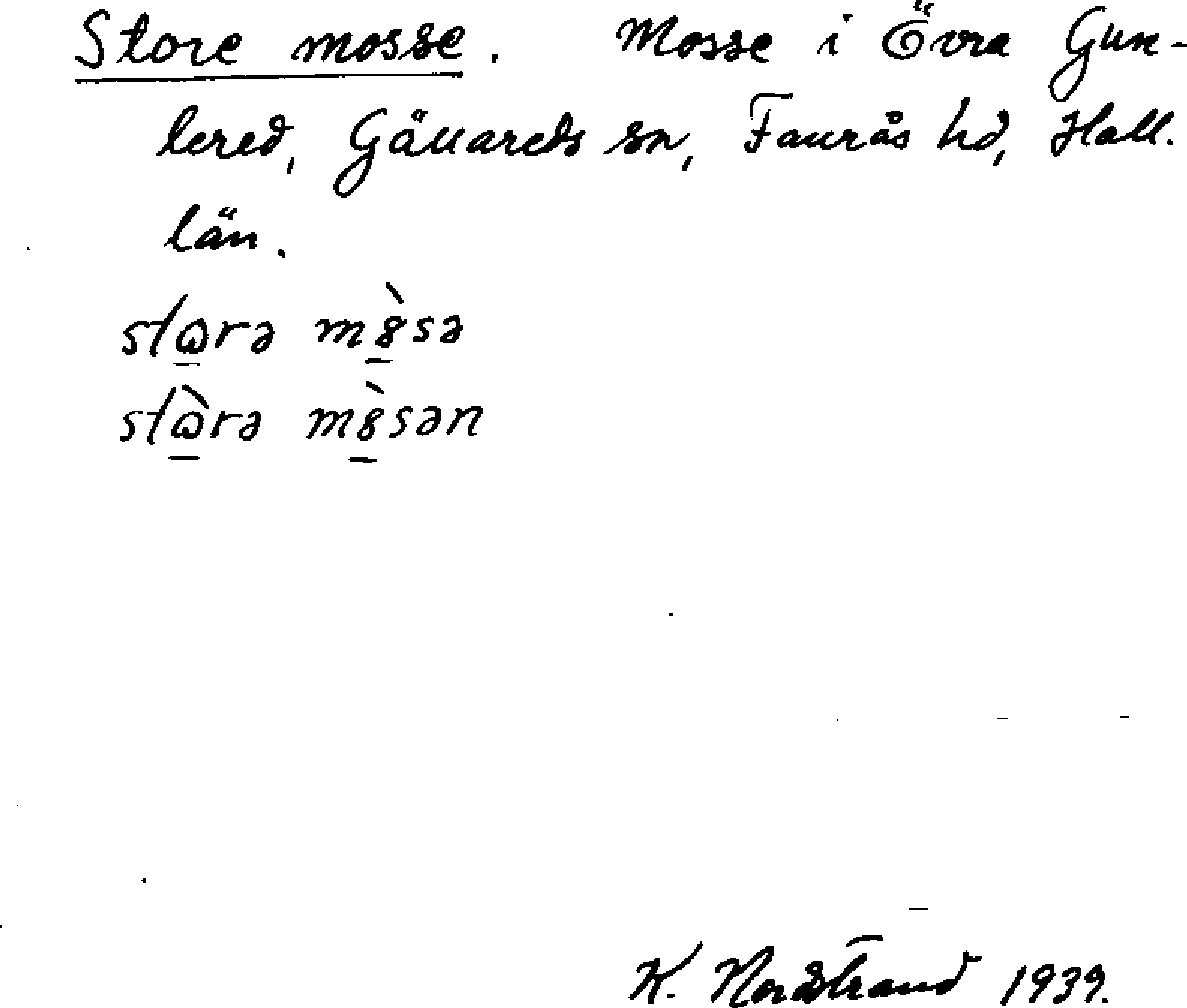 Store mosse. Mosse i Övra Gun-
lered, Gällareds sn, Faurås hd, Hall.
län.
stɷrə mȣ̀sə
stɷ̀rə mȣ̀sən
K. Nordstrand 1939.